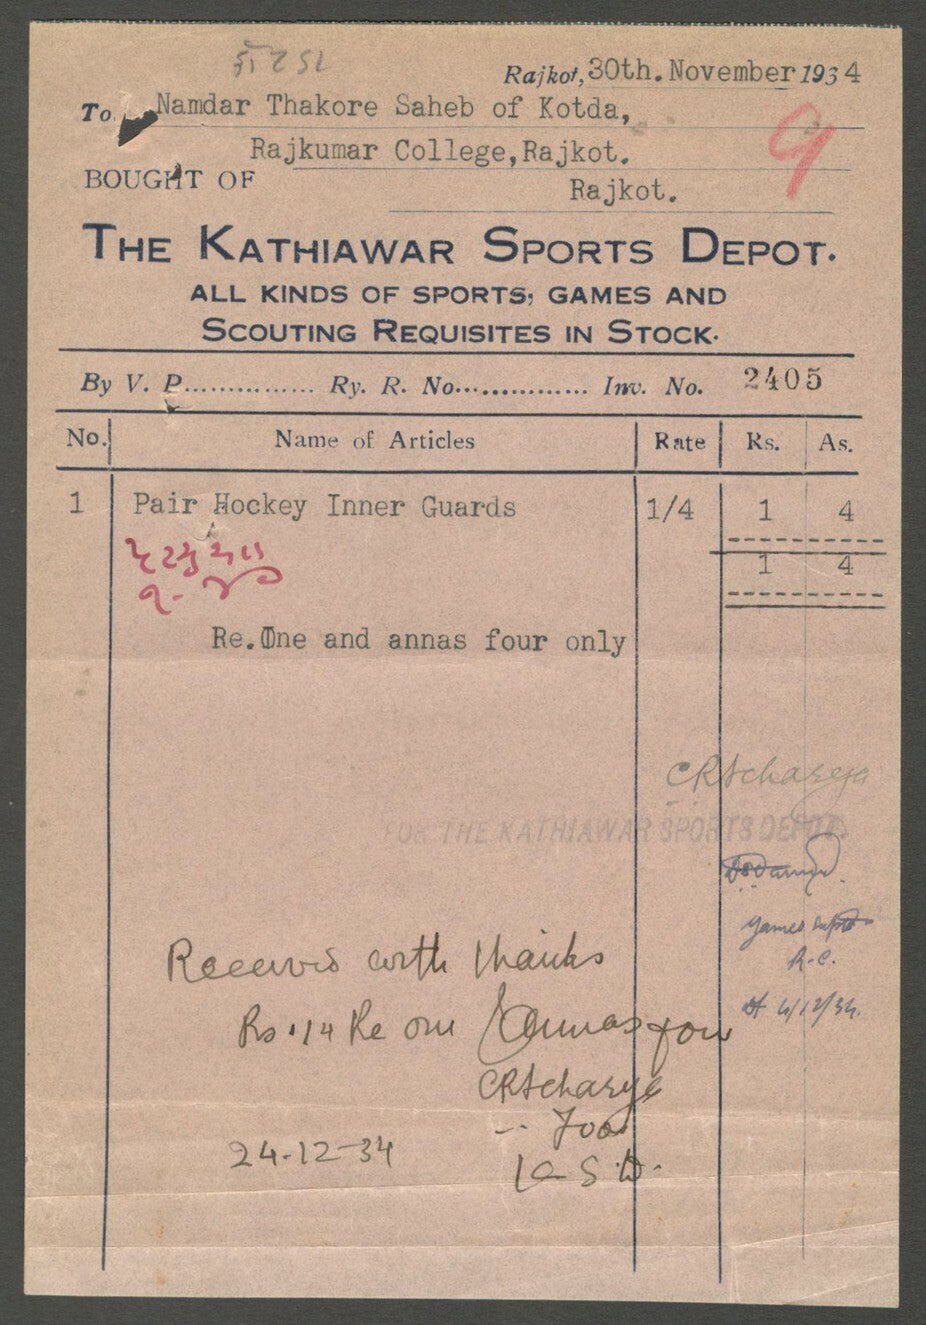 Rajkot, 30th. November 1934
To Namdar Thakore Saheb of Kotda,
Rajkumar College, Rajkot.
BOUGHT OF
Rajkot.
9
THE KATHIAWAR SPORTS DEPOT.
ALL KINDS OF SPORTS, GAMES AND
SCOUTING REQUISITES IN STOCK.
By V. P............... Ry. R. No............... Inv. No. 2405
No. Name of Articles Rate Rs. As.
1 Pair Hockey Inner Guards 1/4 1 4
1 4
Re. One and annas four only
CRAcharya
FOR THE KATHIAWAR SPORTS DEPOT.
Games Supdt
R.C.
Received with thanks
Rs 1/4 Re one & annas four
Dt 4/12/34.
CRAcharya
For
24-12-34
K S D.